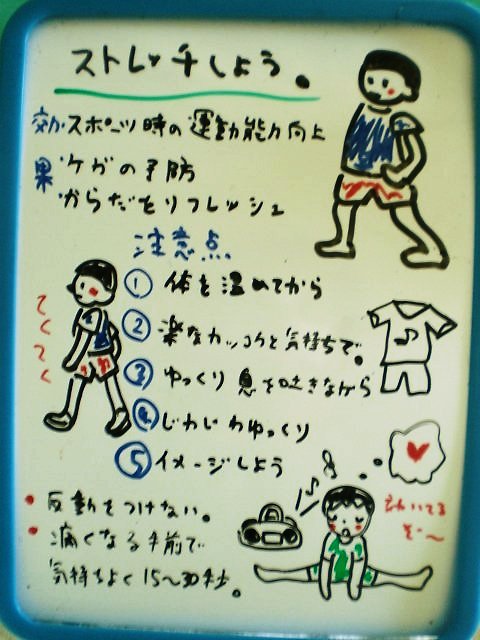 ストレッチしよう。
効果
・スポーツ時の運動能力向上
・ケガの予防
・からだをリフレッシュ
注意点
① 体を温めてから
② 楽なカッコウと気持ちで。
③ ゆっくり息を吐きながら
④ じわじわゆっくり
⑤ イメージしよう
てくてく
・反動をつけない。
・痛くなる手前で
気持ちよく15〜30秒。
きいてるぞ〜